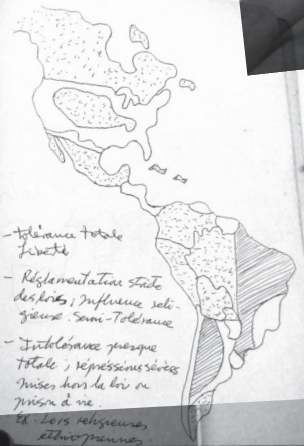 - Tolérance totale
Liberté
- Réglamentation stricte
des lois, influence reli-
gieuse. Semi-Tolérance
- Intolérance presque
totale, répressions sévères
mises hors la loi ou
prison à vie
Ex. Lois religieuses
ethiopiennes.